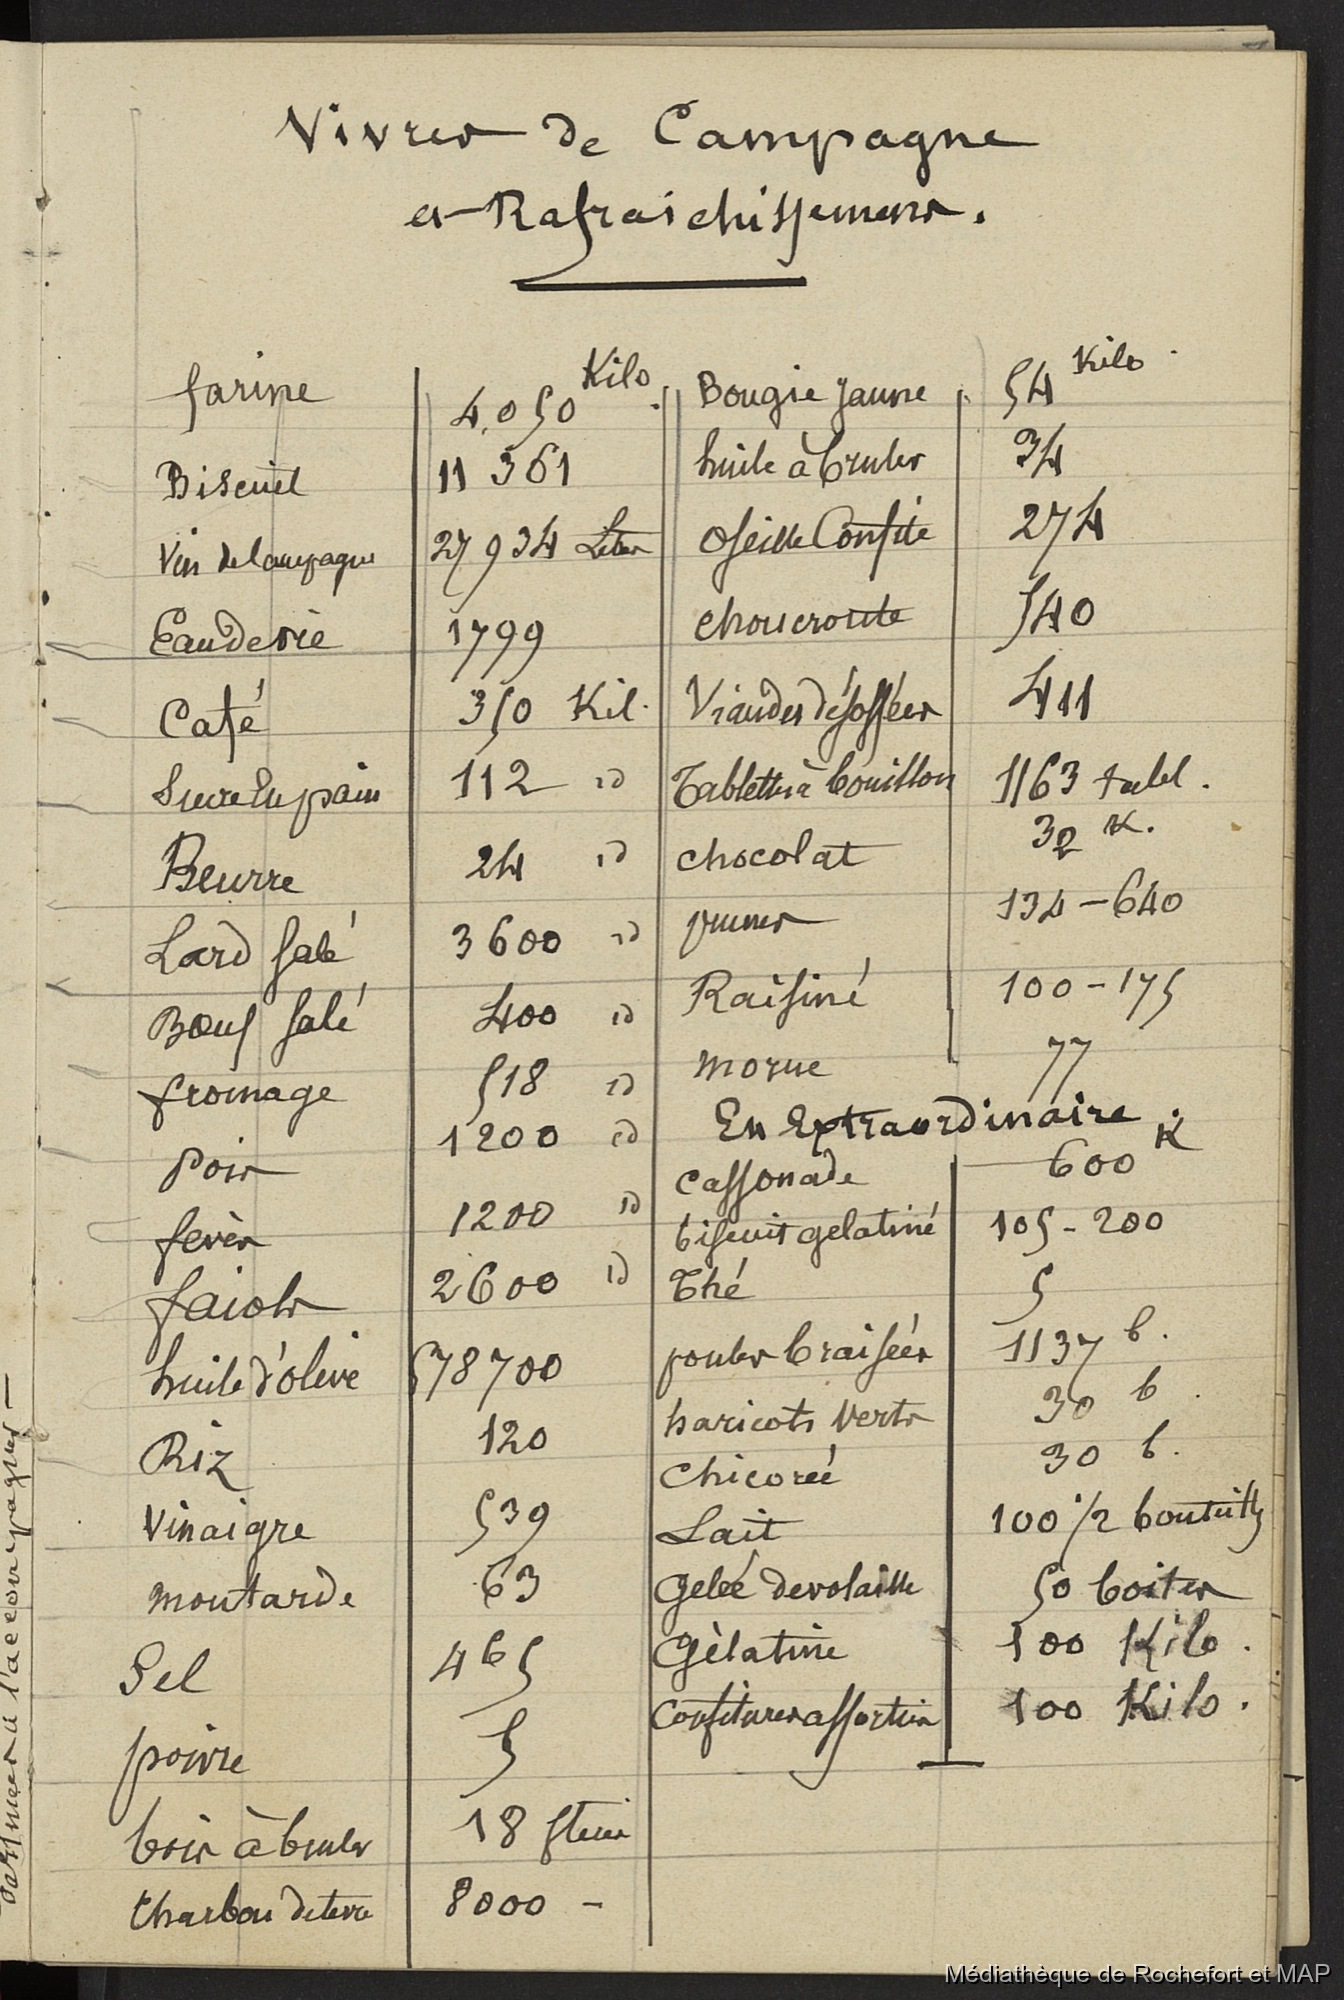 Vivres de Campagne
et Rafraichissements.
farine 4.050 Kilo.
Biscuit 11 361
Vin de Campagne 27 934 Litres
Eau de vie 1799
Café 350 Kil.
Sucre En pain 112 id
Beurre 24 id
Lard Salé 3600 id
Bœuf Salé 400 id
fromage 518 id
Pois 1200 id
fevès 1200 id
faiols 2600 id
huile d'olive 578 700
Riz 120
Vinaigre 539
moutarde 63
Sel 465
poivre 5
bois à bruler 18 steres
Charbon de terre 8000 -
Bougie jaune 54 Kilo.
huile à bruler 34
Oseille Confite 274
choucroute 540
Viandes désossées 411
Tablettes à bouillon 1163 tabl.
chocolat 32 K.
prunes 134 - 640
Raisiné 100 - 175
morue 77
En Extraordinaire
cassonade 600 K
biscuit gelatiné 105 - 200
Thé 5
poules braisées 1137 b.
haricots Verts 30 b.
Chicoreé 30 b.
Lait 100 1/2 bouteilles
Geleé de volaille 50 boites
Gèlatine 100 Kilo.
Confitures assorties 100 Kilo.
l'accompagner —
Médiathèque de Rochefort et MAP